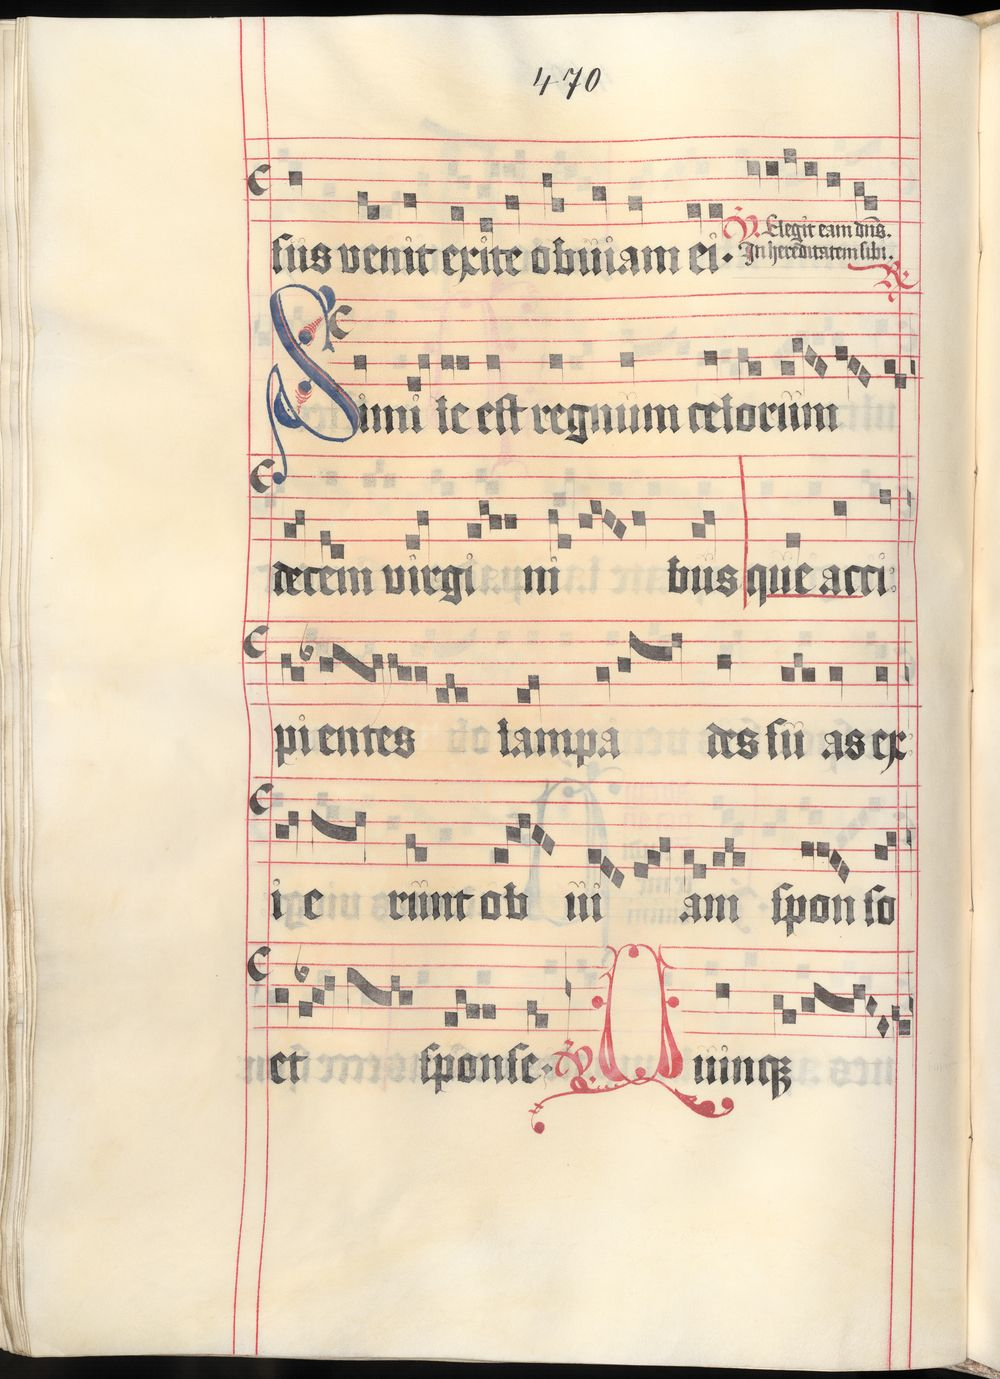 470
sus venit exite obuiam ei.
V. Elegit eam dns.
In hereditatem sibi.
R
Simi le est regnum celorum
decem virgi ni bus que acci
pientes lampa des su as ex
i e runt ob ui am spon so
et sponse. V. Quinqꝫ